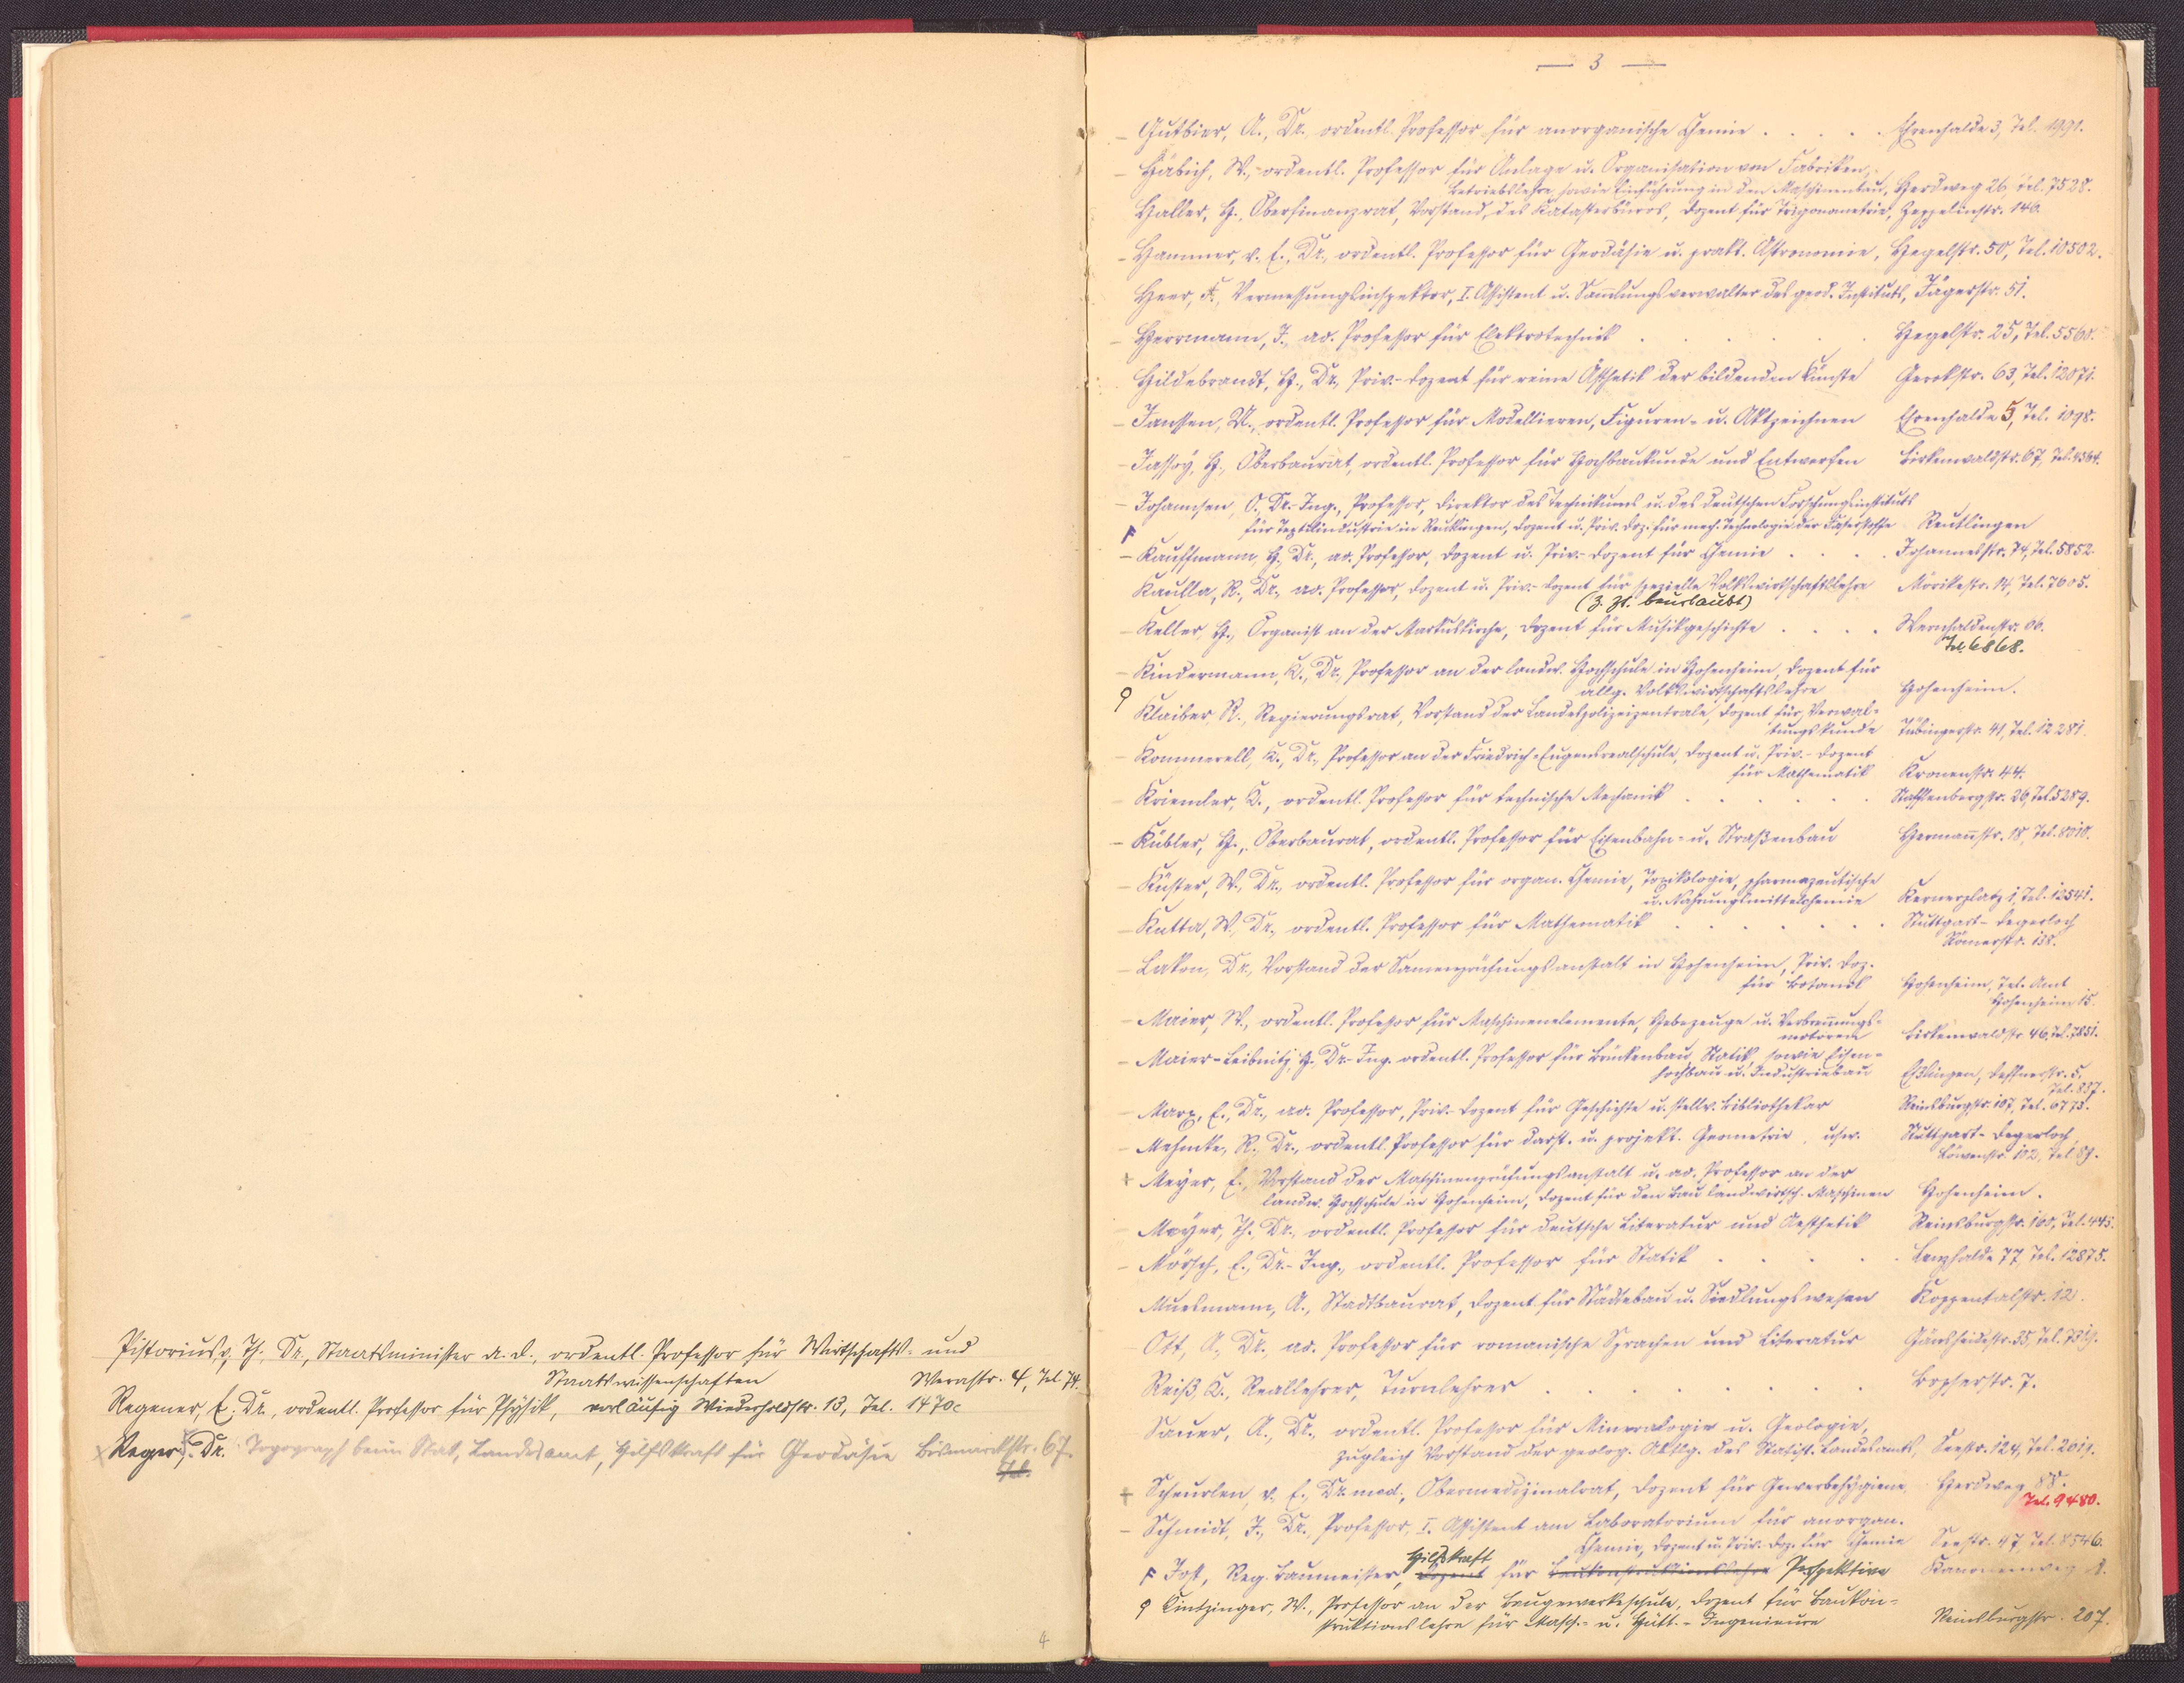 Pistorius, v. Th., Dr., Staatsminister a. D., ordentl. Professor für Wirtschafts- und
Staatswissenschaften Werastr. 4, Tel. 74.
Regener, E. Dr., ordentl. Professor für Physik, vorläufig Wiederholdstr. 13, Tel. 1470
Reger, Dr. Topograph beim Stat. Landesamt, Hilfskraft für Geodäsie Bismarckstr. 67.
Tel.
4
— 3 —
- Gutbier, A., Dr., ordentl. Professor für anorganische Chemie . . . . . Ehrenhalde 3, Tel. 1991.
- Häbich, W., ordentl. Professor für Anlage u. Organisation von Fabriken,
Betriebslehre sowie Einführung in den Maschinenbau, Herdweg 26, Tel. 7528.
Haller, H., Oberfinanzrat, Vorstand des Katasterbüros, Dozent für Trigonometrie, Zeppelinstr. 146.
- Hammer, v. E., Dr., ordentl. Professor für Geodäsie u. prakt. Astronomie, Hegelstr. 50, Tel. 10502.
Heer, F., Vermessungsinspektor, I. Assistent u. Sam̄lungsverwalter des geod. Instituts, Jägerstr. 51.
- Herrmann, J., ao. Professor für Elektrotechnik . . . . . Hegelstr. 25, Tel. 5560.
Hildebrandt, H., Dr., Priv.-Dozent für reine Ästhetik der bildenden Künste Gerokstr. 63, Tel. 12071.
- Janssen, U., ordentl. Professor für Modellieren, Figuren- u. Aktzeichnen Ehrenhalde 5, Tel. 1098.
- Jassoy, H., Oberbaurat, ordentl. Professor für Hochbaukunde und Entwerfen Birkenwaldstr. 67, Tel. 4564.
- Johannsen, O., Dr.-Ing., Professor, Direktor des Technikums u. des deutschen Forschungsinstituts
für Textilindustrie in Reutlingen, Dozent u. Priv. Doz. für mech. Technologie der Faserstoffe Reutlingen
F
- Kauffmann, H., Dr., ao. Professor, Dozent u. Priv.-Dozent für Chemie . . . . Johannesstr. 74, Tel. 5852.
Kaulla, R., Dr., ao. Professor, Dozent u. Priv.-Dozent für spezielle Volkswirtschaftslehre Mörikestr. 14, Tel. 7605.
(z. Zt. beurlaubt)
- Keller, H., Organist an der Markuskirche, Dozent für Musikgeschichte . . . . Wernhaldenstr. 06.
Tel. 6868.
- Kindermann, K., Dr., Professor an der landw. Hochschule in Hohenheim, Dozent für
allg. Volkswirtschaftslehre Hohenheim.
Klaiber, R., Regierungsrat, Vorstand der Landespolizeizentrale, Dozent für Verwal-
tungskunde Tübingerstr. 41, Tel. 12281.
- Kommerell, K., Dr., Professor an der Friedrich-Eugensrealschule, Dozent u. Priv.-Dozent
für Mathematik Kronenstr. 44.
- Kriemler, K., ordentl. Professor für technische Mechanik . . . . . Stafflenbergstr. 26, Tel. 5289.
- Kübler, H., Oberbaurat, ordentl. Professor für Eisenbahn- u. Straßenbau Herman̄str. 18, Tel. 8010.
- Küster, W., Dr., ordentl. Professor für organ. Chemie, Toxikologie, pharmazeutische
u. Nahrungsmittelchemie Kernerplatz 1, Tel. 12541.
- Kutta, W., Dr., ordentl. Professor für Mathematik . . . . . . Stuttgart-Degerloch
Römerstr. 138.
- Lakon, Dr., Vorstand der Samenprüfungsanstalt in Hohenheim, Priv. Doz.
für Botanik Hohenheim, Tel. Amt
Hohenheim 15.
- Maier, W., ordentl. Professor für Maschinenelemente, Hebezeuge u. Verbren̄ungs-
motoren Birkenwaldstr. 46, Tel. 7851.
- Maier-Leibnitz, H., Dr.-Ing. ordentl. Professor für Brückenbau, Statik, sowie Eisen-
hochbau u. Industriebau Eßlingen, Deffnerstr. 5.
Tel. 837.
- Marx, E., Dr., ao. Professor, Priv.-Dozent für Geschichte u. stellv. Bibliothekar Reinsburgstr. 107, Tel. 6773.
- Mehmke, R., Dr., ordentl. Professor für darst. u. projekt. Geometrie, usw. Stuttgart-Degerloch,
Löwenstr. 102, Tel. 89.
+ Meyer, E., Vorstand der Maschinenprüfungsanstalt u. ao. Professor an der
landw. Hochschule in Hohenheim, Dozent für den Bau landwirtsch. Maschinen Hohenheim.
- Meyer, Th., Dr., ordentl. Professor für deutsche Literatur und Aesthetik Reinsburgstr. 100, Tel. 445.
- Mörsch, E., Dr.-Ing., ordentl. Professor für Statik . . . . . Lenzhalde 77, Tel. 12875.
Muesmann, A., Stadtbaurat, Dozent für Städtebau u. Siedlungswesen Koppentalstr. 12.
Ott, A., Dr., ao. Professor für romanische Sprachen und Literatur Gänsheidestr. 35, Tel. 7319.
Reiß, K., Reallehrer, Turnlehrer . . . . . . . . Bopserstr. 7.
Sauer, A., Dr., ordentl. Professor für Mineralogie u. Geologie,
zugleich Vorstand der geolog. Abtlg. des Statist. Landesamts, Seestr. 124, Tel. 2019.
+ Scheurlen, v. E., Dr. med., Obermedizinalrat, Dozent für Gewerbehygiene Herdweg 88.
Tel. 9480.
- Schmidt, J., Dr., Professor, I. Assistent am Laboratorium für anorgan.
Chemie, Dozent u. Priv.-Doz. für Chemie Seestr. 47, Tel. 8546.
F Jost, Reg. Baumeister, Dozent Hilfskraft für Baukonstruktionslehre Perspektive Kanonenweg
Kintzinger, W., Professor an der Baugewerkeschule, Dozent für Baukon-
struktionslehre für Masch.- u. Hütt.-Ingenieure Reinsburgstr. 207.